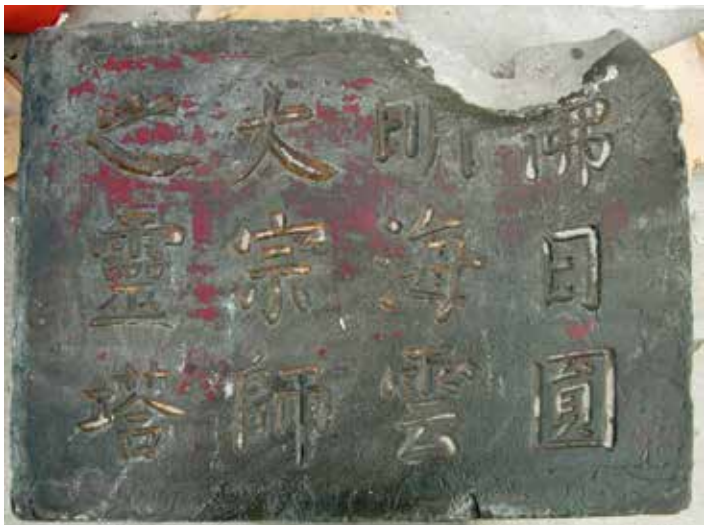 佛日圓
明海雲
大宗師
之靈塔